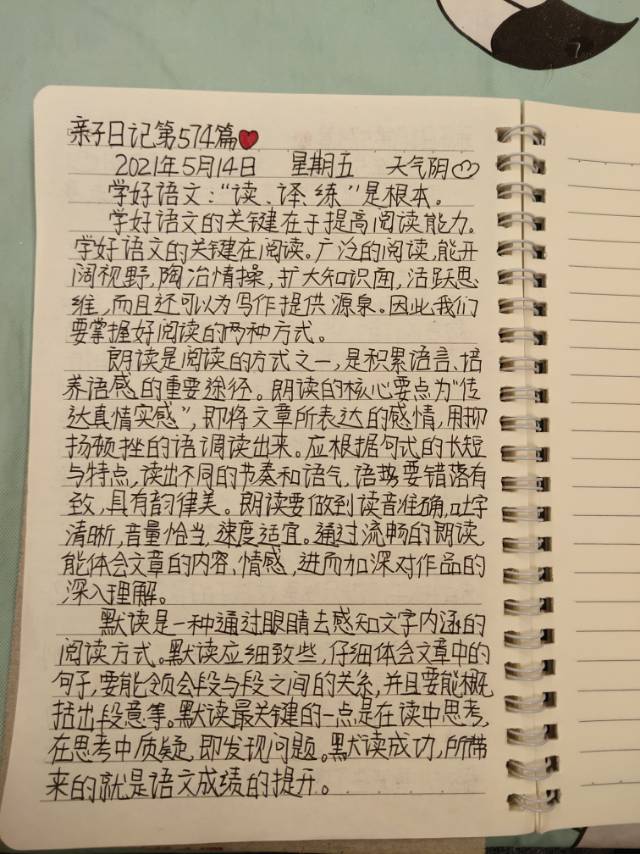 亲子日记第574篇
2021年5月14日 星期五 天气阴
学好语文：“读、译、练”是根本。
学好语文的关键在于提高阅读能力。
学好语文的关键在阅读。广泛的阅读，能开
阔视野，陶冶情操，扩大知识面，活跃思
维，而且还可以为写作提供源泉。因此我们
要掌握好阅读的两种方式。
朗读是阅读的方式之一，是积累语言、培
养语感的重要途径。朗读的核心要点为“传
达真情实感”，即将文章所表达的感情，用抑
扬顿挫的语调读出来。应根据句式的长短
与特点，读出不同的节奏和语气，语势要错落有
致，具有韵律美。朗读要做到读音准确，吐字
清晰，音量恰当，速度适宜。通过流畅的朗读，
能体会文章的内容、情感，进而加深对作品的
深入理解。
默读是一种通过眼睛去感知文字内涵的
阅读方式。默读应细致些，仔细体会文章中的
句子，要能领会段与段之间的关系，并且要能概
括出段意等。默读最关键的一点是在读中思考，
在思考中质疑，即发现问题。默读成功，所带
来的就是语文成绩的提升。